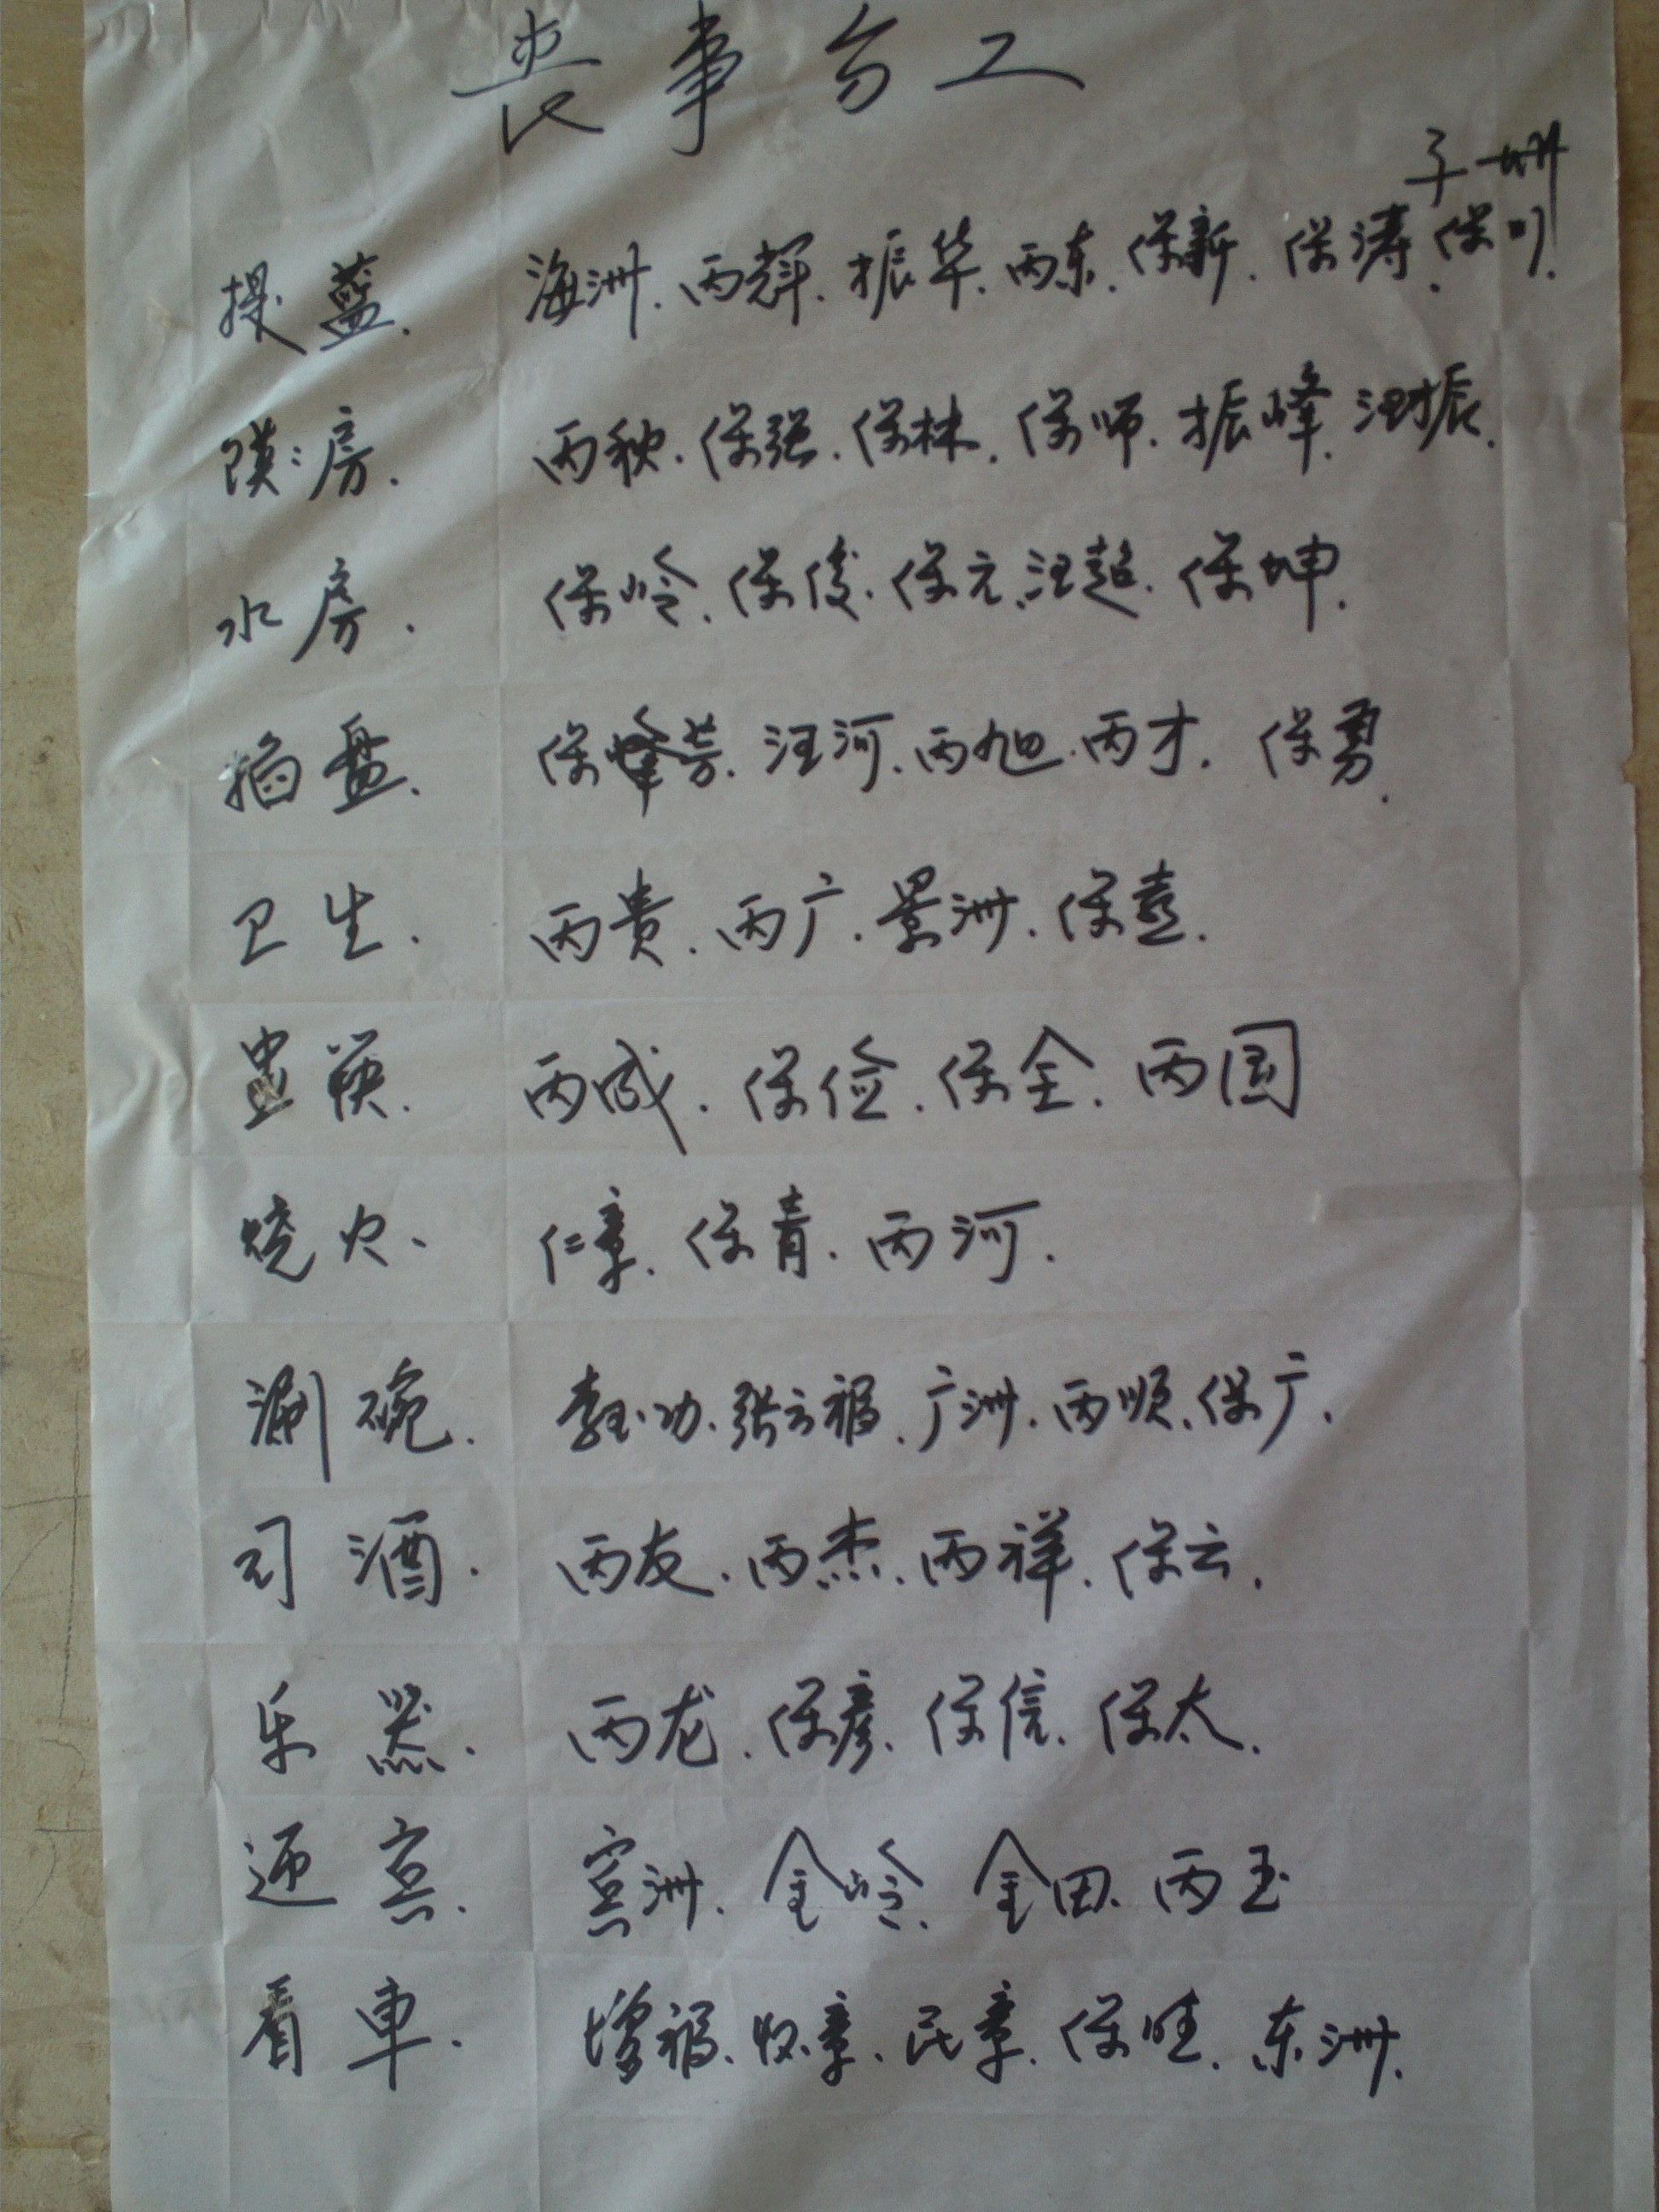 丧事分工
提蓝. 海洲. 丙辉. 振华. 丙东. 保新. 保涛. 保川.
馍房. 丙秋. 保强. 保林. 保师. 振峰. 汪振.
水房. 保岭. 保俊. 保元. 汪超. 保坤.
掐盘. 保芳. 汪河. 丙旭. 丙才. 保勇.
卫生. 丙贵. 丙广. 景洲. 保喜.
盅筷. 丙成. 保俭. 保全. 丙国
烧火. 仁章. 保青. 丙河.
涮碗. 功. 张云福. 广洲. 丙顺. 保广.
司酒. 丙友. 丙杰. 丙祥. 保云.
乐器. 丙龙. 保彦. 保信. 保太.
迎宾. 宾洲. 金岭. 金田. 丙玉
看車. 增福. 收章. 民章. 保旺. 东洲.